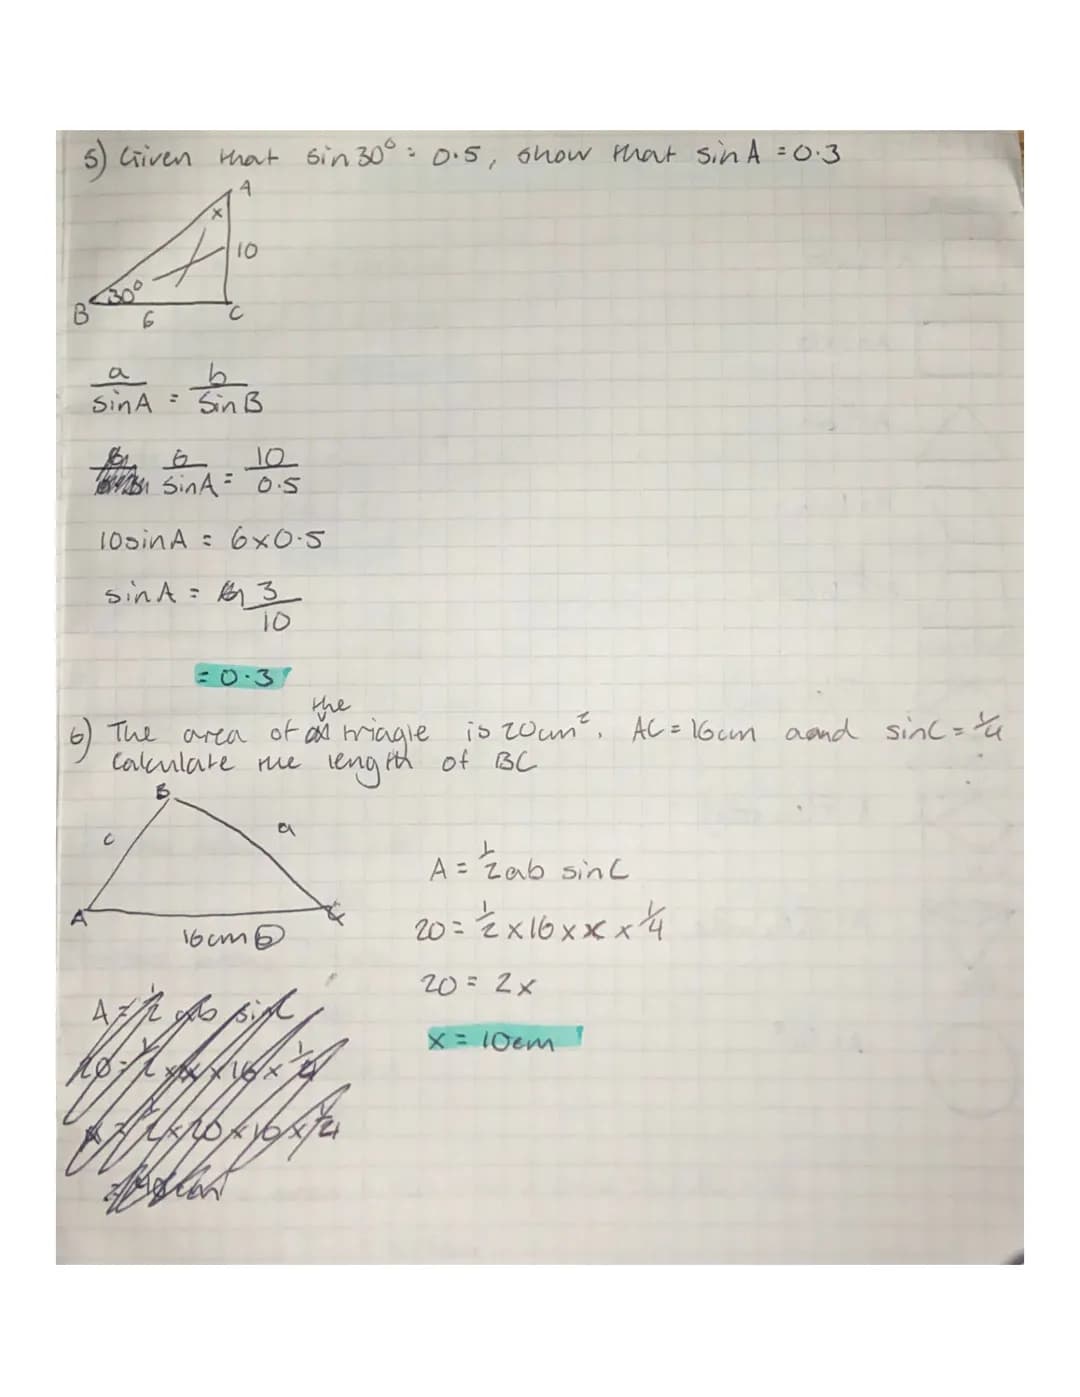 5) Given that sin 30° = 0.5, show that sin A = 0.3
A
x
10
30°
B
6
C
a/sinA = b/SinB
6/sinA = 10/0.5
10sinA = 6x0.5
sinA = 3/10
= 0.3
the
6) The area of triagle is 20cm². AC = 16cm aand sinC = ¼
Calculate the length of BC
B
c
a
A
C
16cm b
A = ½ab sinC
20 = ½ x 16 x x x ¼
20 = 2x
x = 10cm